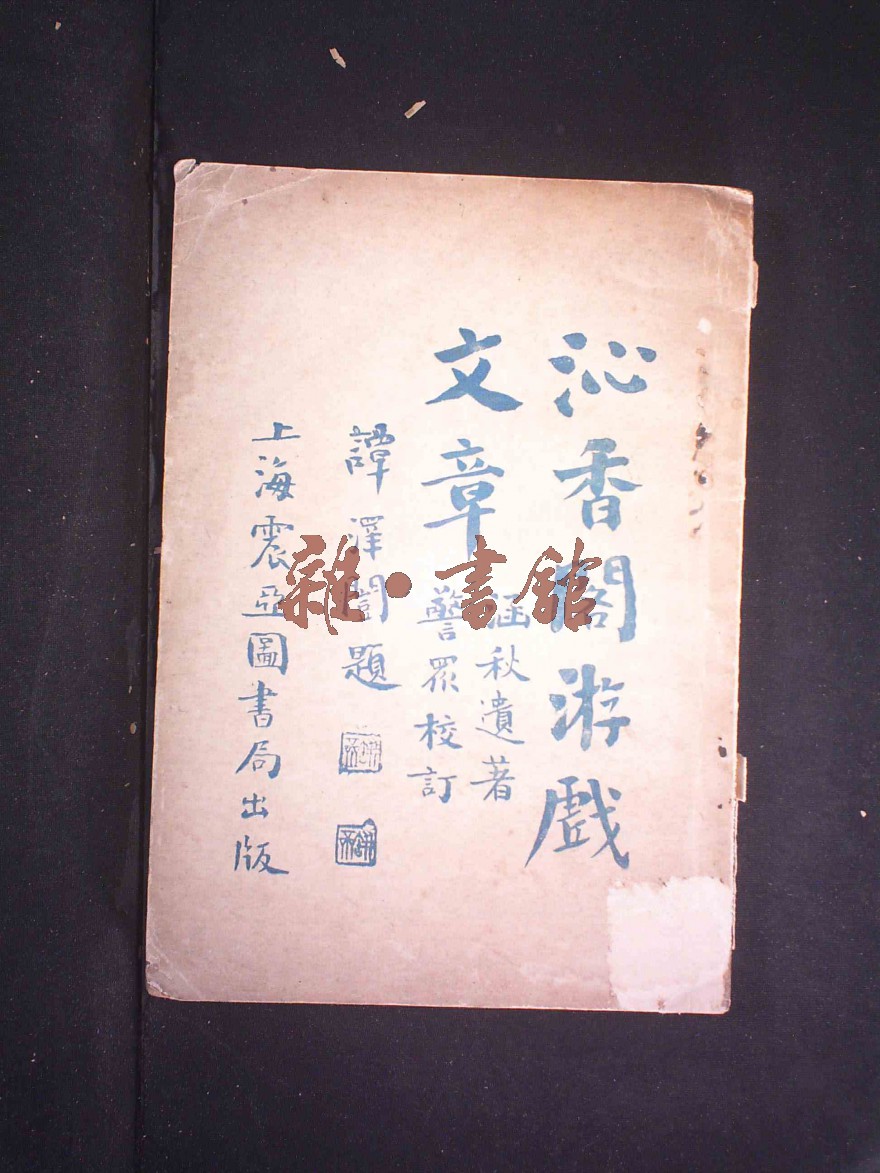 沁香閣游戲
文章
涵秋遺著
警眾校訂
譚澤闓題
上海震亞圖書局出版
雜·書館